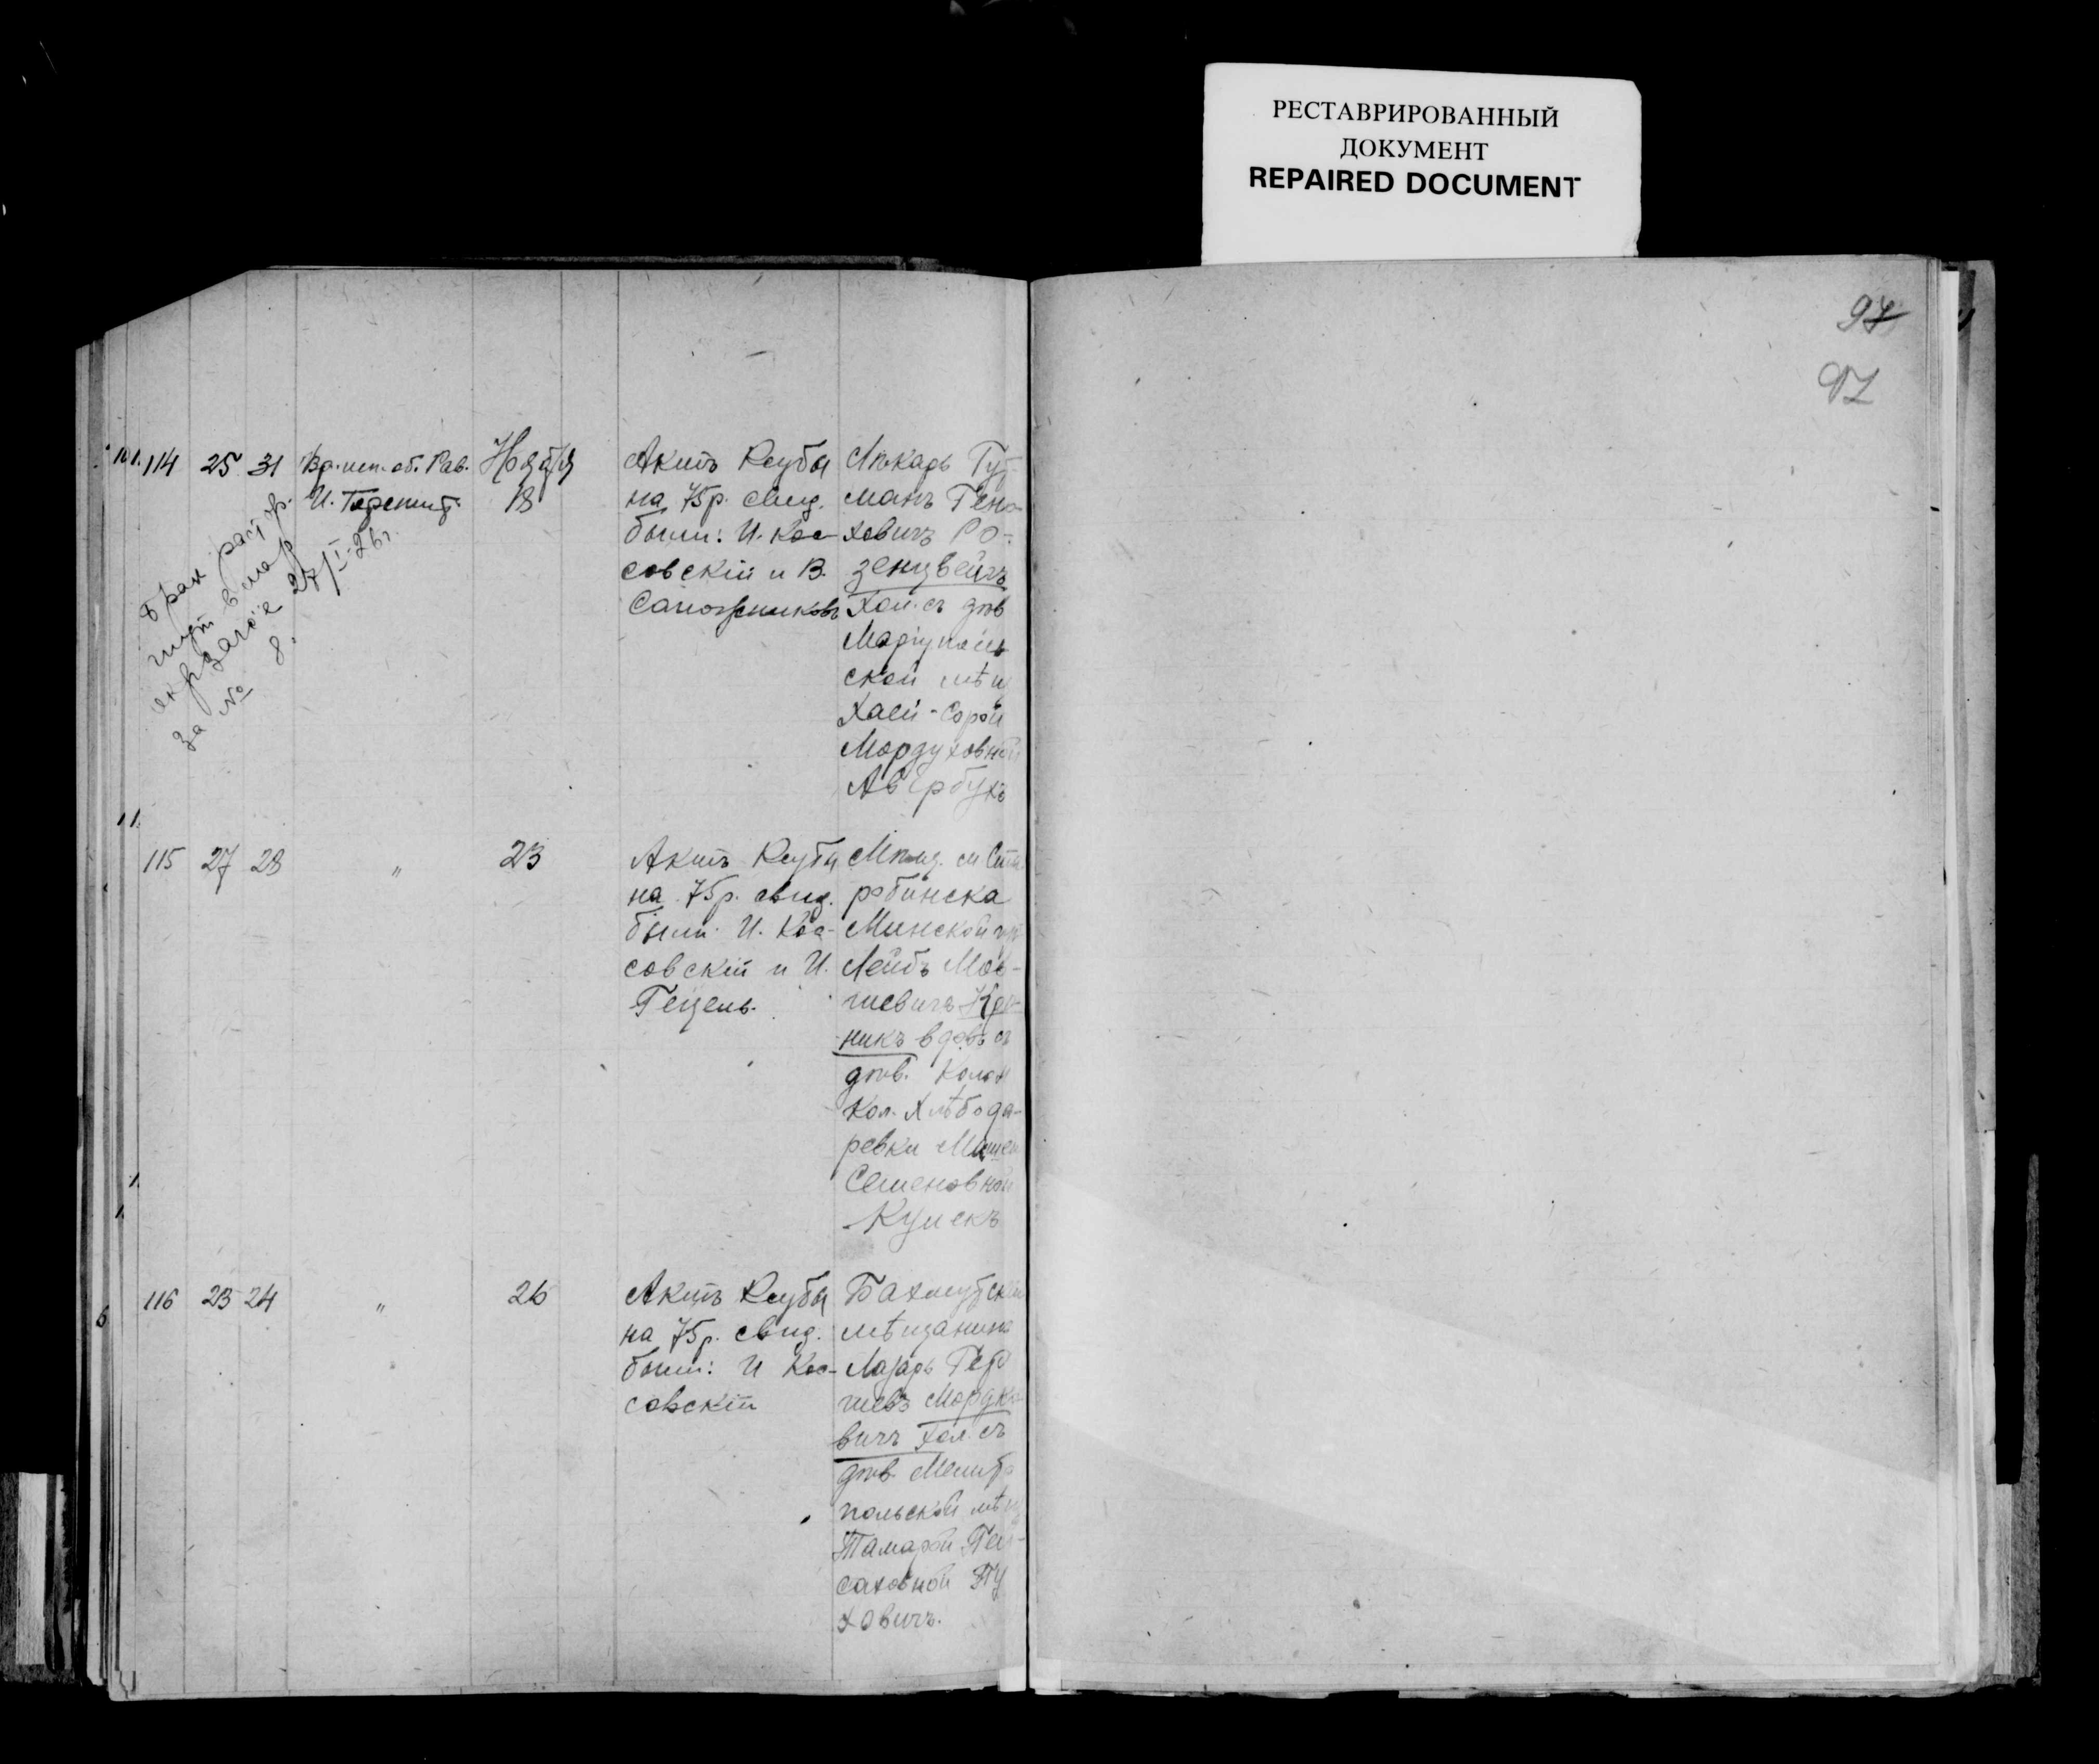 РЕСТАВРИРОВАННЫЙ
ДОКУМЕНТ
REPAIRED DOCUMENT
97
97
114 25 31 Вр. исп. об. Рав. Ноября
И. 18
Актъ Ктубы
на 75 р. свид.
были: И. Кос-
совскій и В.
Сапожниковъ
Лѣкарь Гут-
манъ Гено-
ховичъ Ро-
зенцвейгъ
Хол. съ дѣв
Маріуполь
ской мѣщ
Хаей-Сорой
Мордуховной
Авербухъ
брак раст
в
27/I-26 г.
за № 8.
115 27 28 " 23
Актъ Ктубы
на 75 р. свид.
были: И. Кос-
совскій и И.
Гецель.
Мѣщ. м Ста
робинска
Минской губ
Лейбъ Мов-
шевичъ Кра-
никъ вдовъ съ
дѣв. колон
кол. Хлѣбода-
ровки
Семеновной
116 23 24 " 26
Актъ Ктубы
на 75 р. свид.
были: И Кос-
совскій
Бахмутскій
мѣщанинъ
Лазарь Гер
шевъ Мордко
вичъ Хол. съ
дѣв. Мелито
польской мѣщ
Тамарой Пей-
саховной Пу
ховичъ.